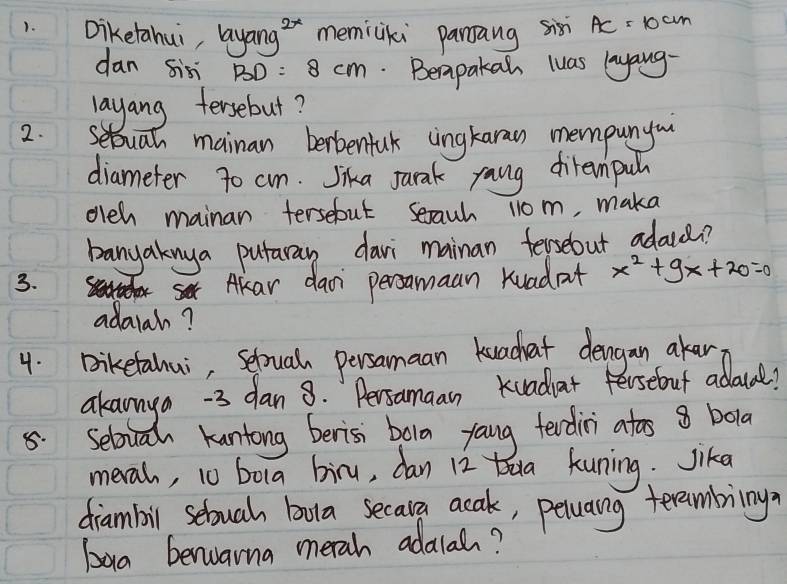 1. Diketahui, layang 2x memiliki panjang sisi AC = 10 cm
dan sisi BD = 8 cm. Berapakah luas layang-
layang tersebut?
2. Sebuah mainan berbentuk lingkaran mempunyai
diameter 70 cm. Jika jarak yang ditempuh
oleh mainan tersebut sejauh 110 m, maka
banyaknya putaran dari mainan tersebut adalah?
3. Akar dari persamaan kuadrat x² + 9x + 20 = 0
adalah?
4. Diketahui, sebuah persamaan kuadrat dengan akar-
akarnya -3 dan 8. Persamaan kuadrat tersebut adalah?
5. Sebuah kantong berisi bola yang terdiri atas 8 bola
merah, 10 bola biru, dan 12 bola kuning. Jika
diambil sebuah bola secara acak, peluang terambilnya
bola berwarna merah adalah?